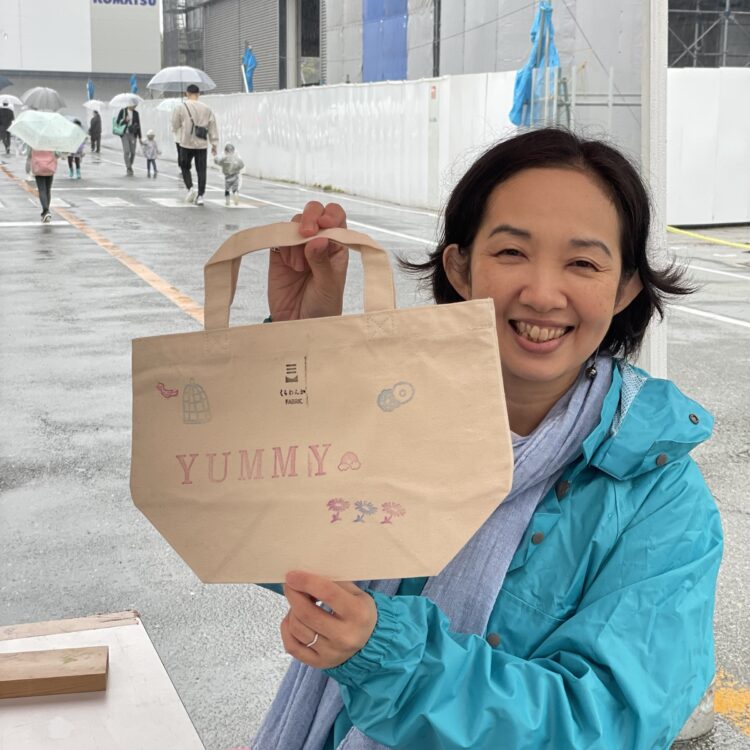 KOMATSU
くらわんか
FABRIC
YUMMY